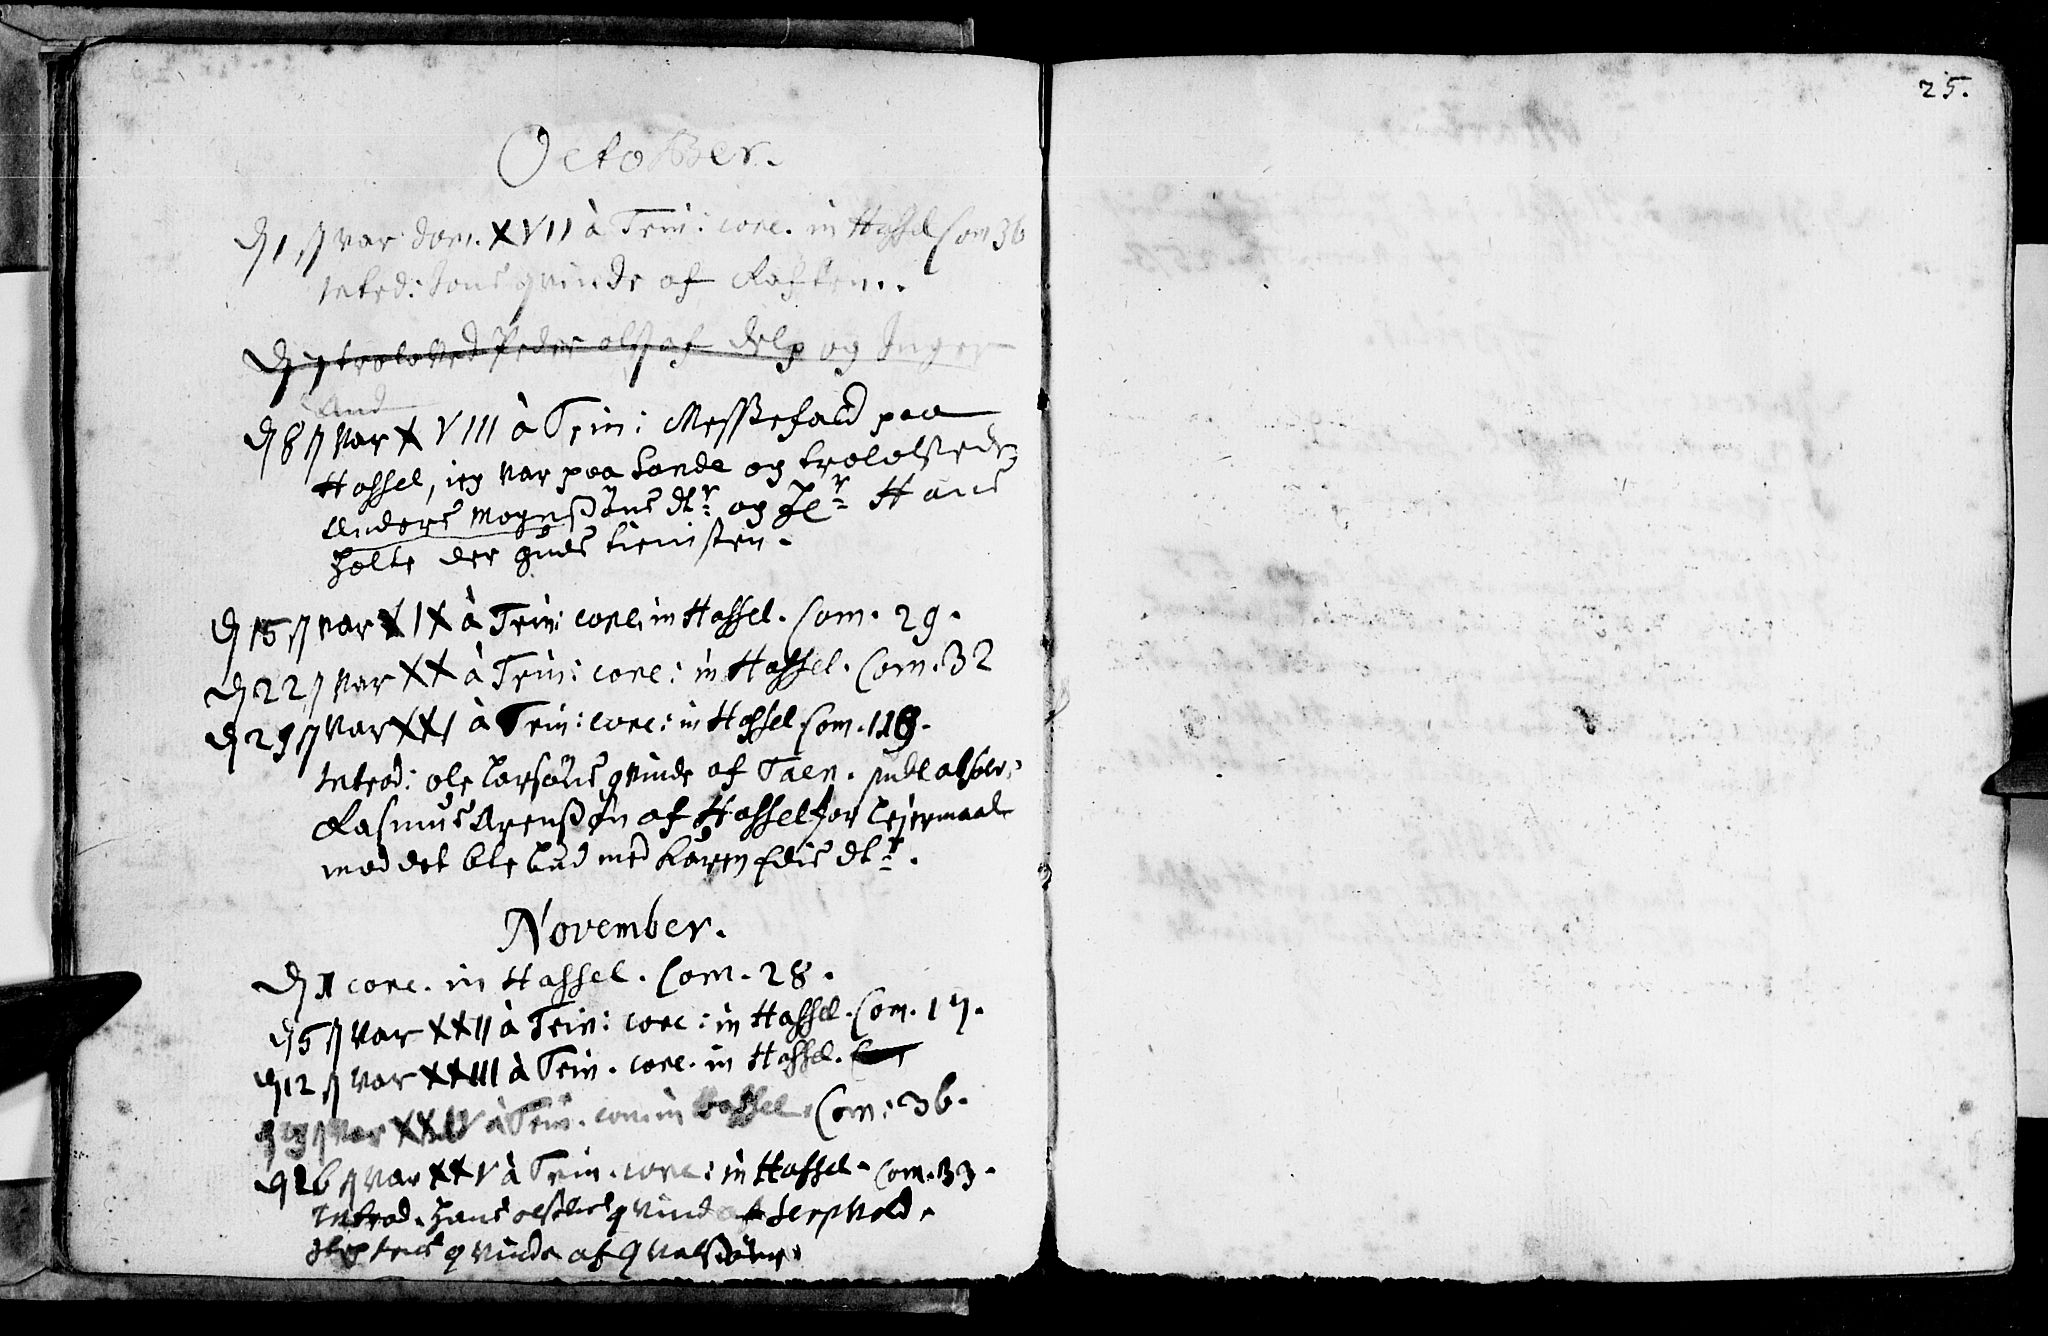 25.
October.
D 1 var dom. XVII à Trin: conc. in Hassel Com 36
Introd: Jons qvinde af
D 7 troloved Peder af Delp og Inger
And
D 8 var XVIII à Trin: Messefald paa
Hassel, ieg var paa Sande og trolofvede
Anders Mognssøns dtr: og Hr: Hans
holte der guds tienisten.
D 15 var XIX à Trin: conc. in Hassel. Com. 29.
D 22 var XX à Trin: conc: in Hassel. Com. 32
D 29 var XXI à Trin: conc: in Hassel Com. 118.
Introd: ole Larsøns qvinde af Taen. publ absolv:
Rasmus Arenssøn af Hassel for Leiermaal
med Karen dtr.
November.
D 1 conc. in Hassel. Com. 28.
D 5 var XXII à Trin: conc: in Hassel. Com. 17.
D 12 var XXIII à Trin. conc. in Hassel.
D 19 var XXIV à Trin. conc in Hassel. Com: 36.
D 26 var XXV à Trin. conc: in Hassel. Com. 33.
Introd. Hans qvinde af Serpvold.
qvinde af